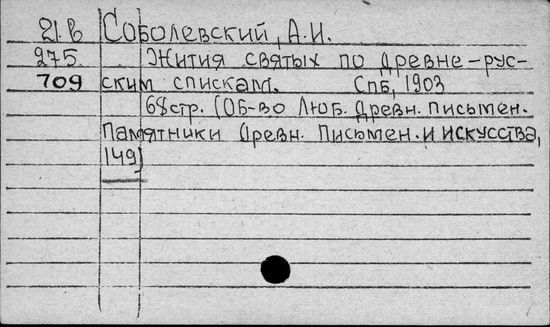 21.в Соболевский, А.И.
275. Жития святых по древне-рус-
709 ским спискам. Спб, 1903
68стр. (Об-во Люб. Древн. письмен.
Памятники Древн. Письмен. и искусства,
149)